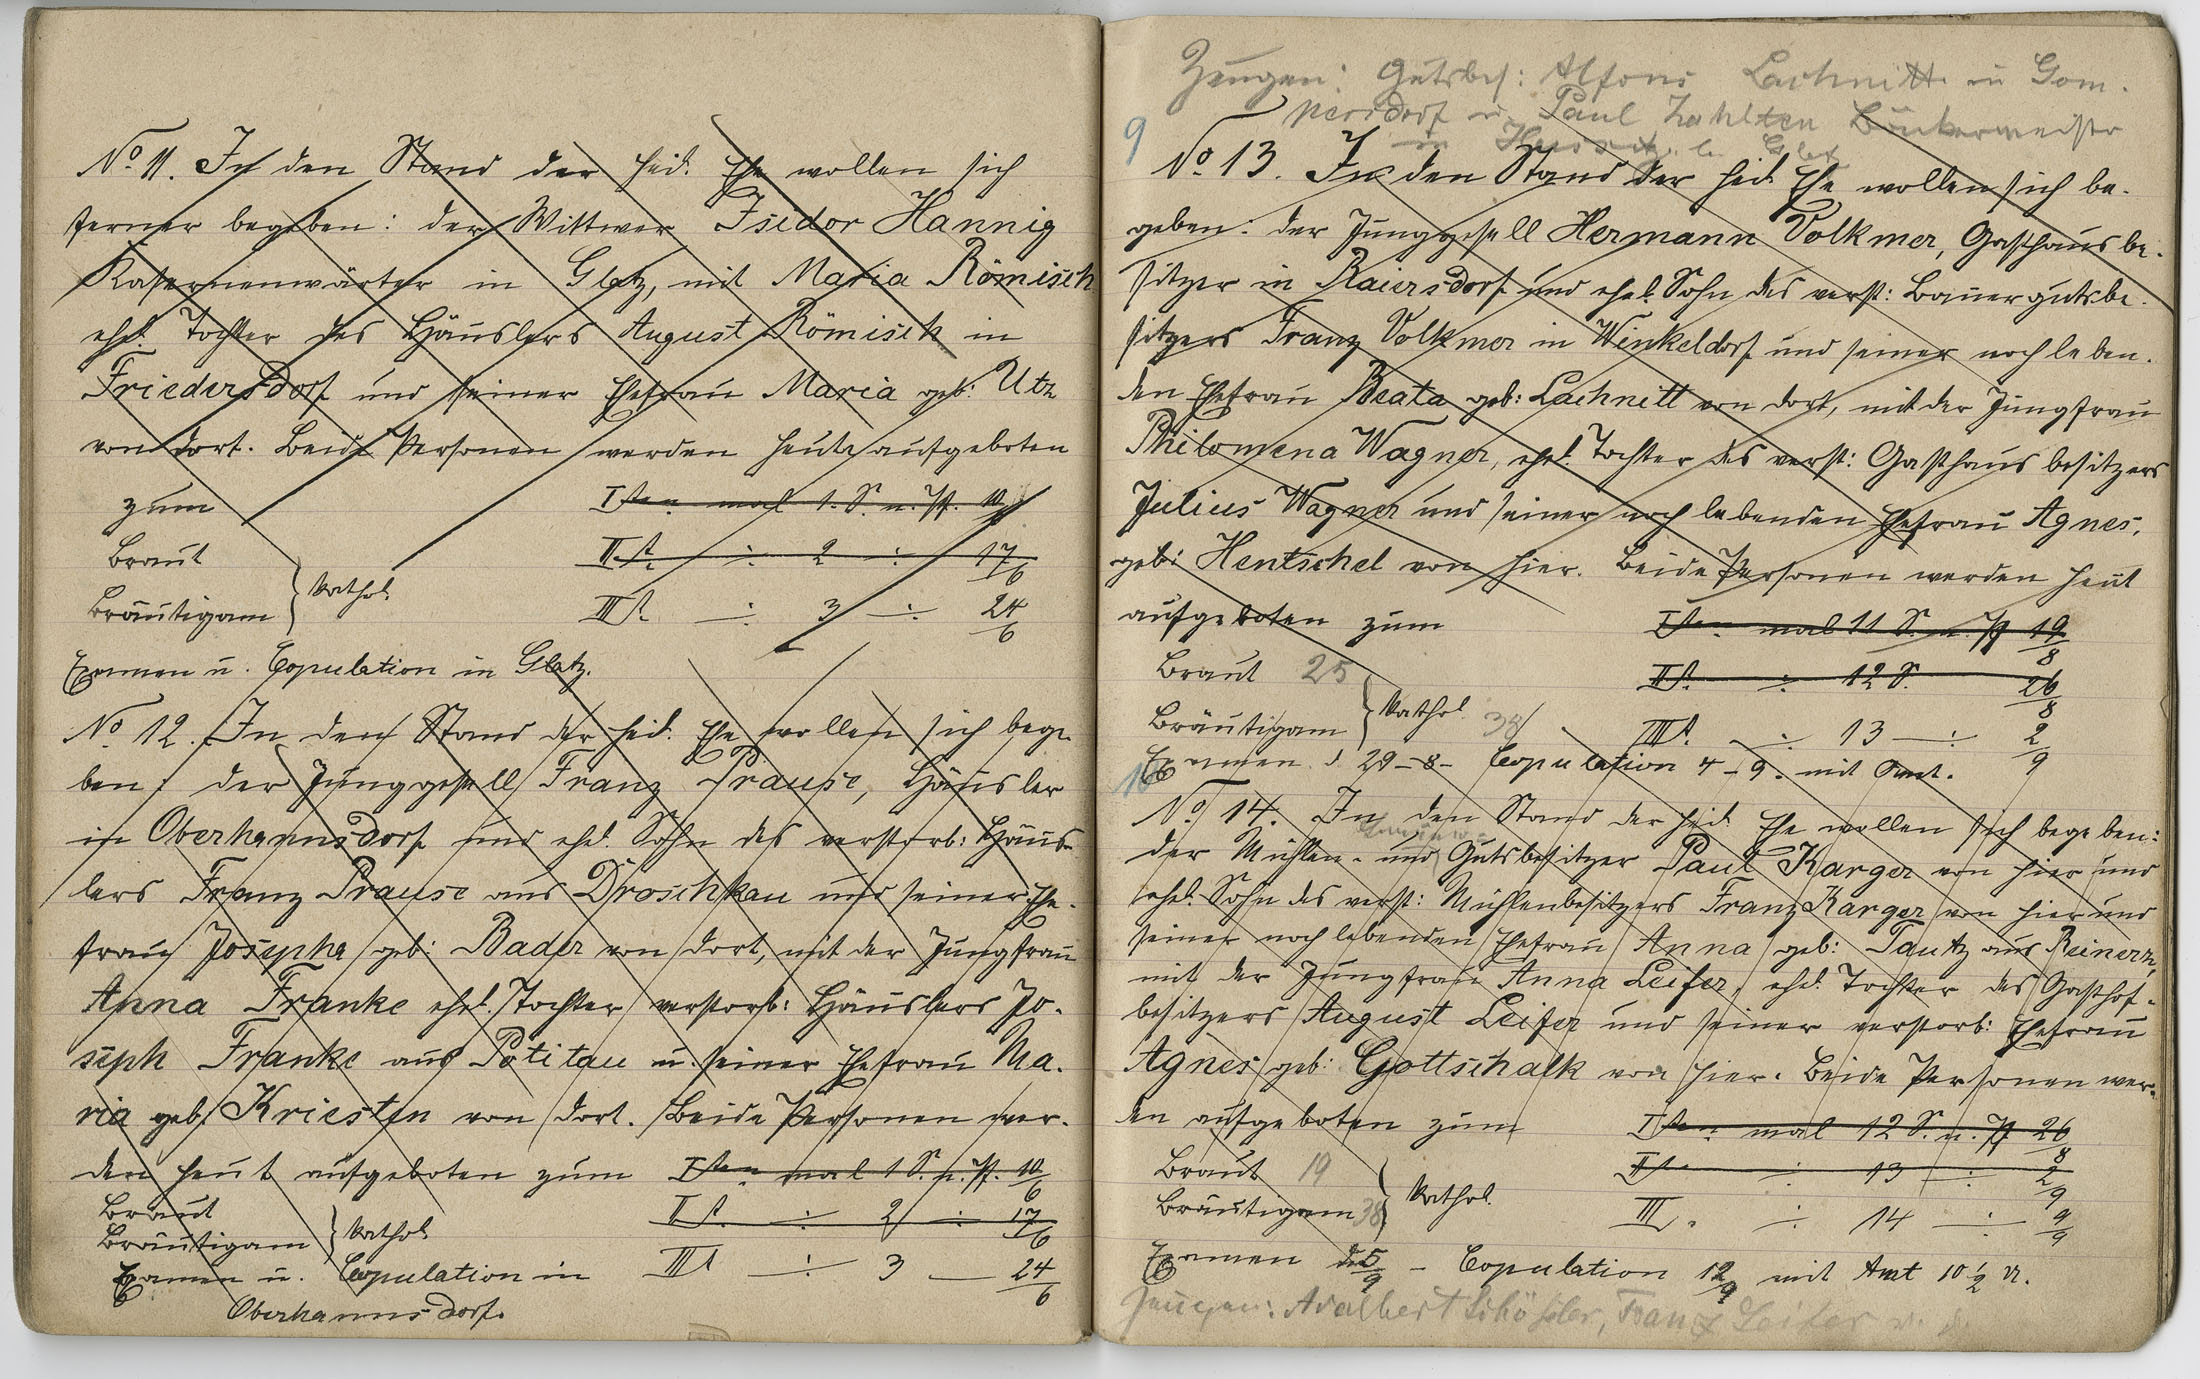 No 11. In den Stand der heil. Ehe wollen sich
ferner begeben: der Wittwer Isidor Hannig
Kasernenwärter in Glatz, mit Maria Römisch
ehel. Tochter des Häuslers August Römisch in
Friedersdorf und seiner Ehefrau Maria geb: Utz
von dort. Beide Personen werden heute aufgeboten
zum Iten mal 1. S. n. Pf. 10/6
Braut IIt. ÷ 2 ÷ 17/6
Bräutigam } kathol. IIIt. ÷ 3 ÷ 24/6
Examen u. Copulation in Glatz.
No 12. In den Stand der heil. Ehe wollen sich bege-
ben: der Junggesell Franz Prause, Häusler
in Oberhannsdorf und ehel. Sohn des verstorb: Häus-
lers Franz Prause aus Droschkau und seiner Ehe-
frau Josepha geb: Bader von dort, mit der Jungfrau
Anna Franke ehel. Tochter verstorb: Häuslers Jo-
seph Franke aus Potitau u. seiner Ehefrau Ma-
ria geb. Kriesten von dort. Beide Personen wer-
den heut aufgeboten zum Iten mal 1 S. n. Pf. 10/6
Braut IIt. ÷ 2 ÷ 17/6
Bräutigam } kathol.
Examen u. Copulation in IIIt ÷ 3 — 24/6
Oberhannsdorf.
Zeugen: Gutsbes: Alfons Lachnitt in Gom-
persdorf u. Paul Bäckermeister
in b. Glatz
9
No 13. In den Stand der heil. Ehe wollen sich be-
geben: der Junggesell Hermann Volkmer, Gasthausbe-
sitzer in Raiersdorf und ehel. Sohn des verst: Bauergutsbe-
sitzers Franz Volkmer in Winkeldorf und seiner noch leben-
den Ehefrau Beata geb: Lachnitt von dort, mit der Jungfrau
Philomena Wagner, ehel. Tochter des verst: Gasthausbesitzers
Julius Wagner und seiner noch lebenden Ehefrau Agnes,
geb: Hentschel von hier. Beide Personen werden heut
aufgeboten zum Iten mal 11 S. n. Pf 19/8
Braut 25 IIt. ÷ 12 S. 26/8
Bräutigam } kathol. 38 IIIt. ÷ 13 ÷ 2/9
Examen d. 29-8- Copulation 4-9. mit Amt.
10
No 14. In den Stand der heil. Ehe wollen sich begeben:
der Mühlen- und Gutsbesitzer Paul Karger von hier und
ehel. Sohn des verst: Mühlenbesitzers Franz Karger von hier und
seiner noch lebenden Ehefrau Anna geb: Tautz aus Reinerz,
mit der Jungfrau Anna Leifer, ehel. Tochter des Gasthof-
besitzers August Leifer und seiner verstorb: Ehefrau
Agnes geb: Gottschalk von hier. Beide Personen wer-
den aufgeboten zum Iten mal 12 S. n. Pf 26/8
Braut 19 IIt. ÷ 13 ÷ 2/9
Bräutigam 38 } kathol. III. ÷ 14 ÷ 9/9
Examen d. 5/9 - Copulation 12/9 mit Amt 10 1/2 U.
Zeugen: Adalbert Franz Leifer v. h.